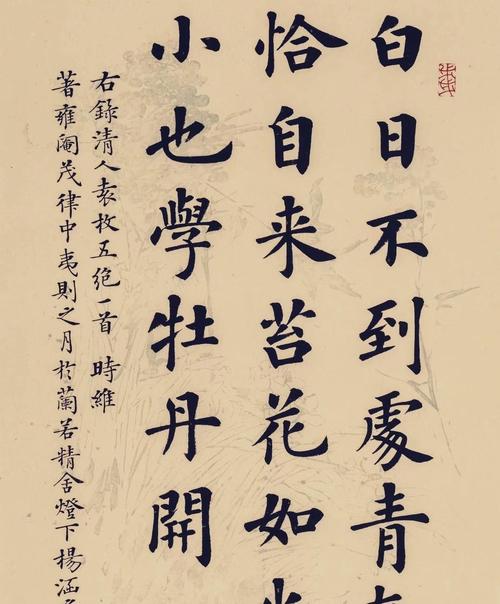 白日不到處青
恰自来苔花如
小也學牡丹開
右錄清人袁枚五絕一首 時維
著雍閹茂律中夷則之月於蘭若精舍燈下楊涵